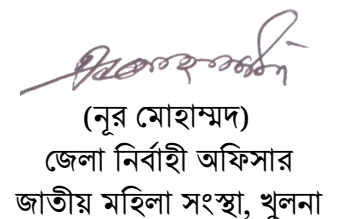 (নূর মোহাম্মদ)
জেলা নির্বাহী অফিসার
জাতীয় মহিলা সংস্থা, খুলনা